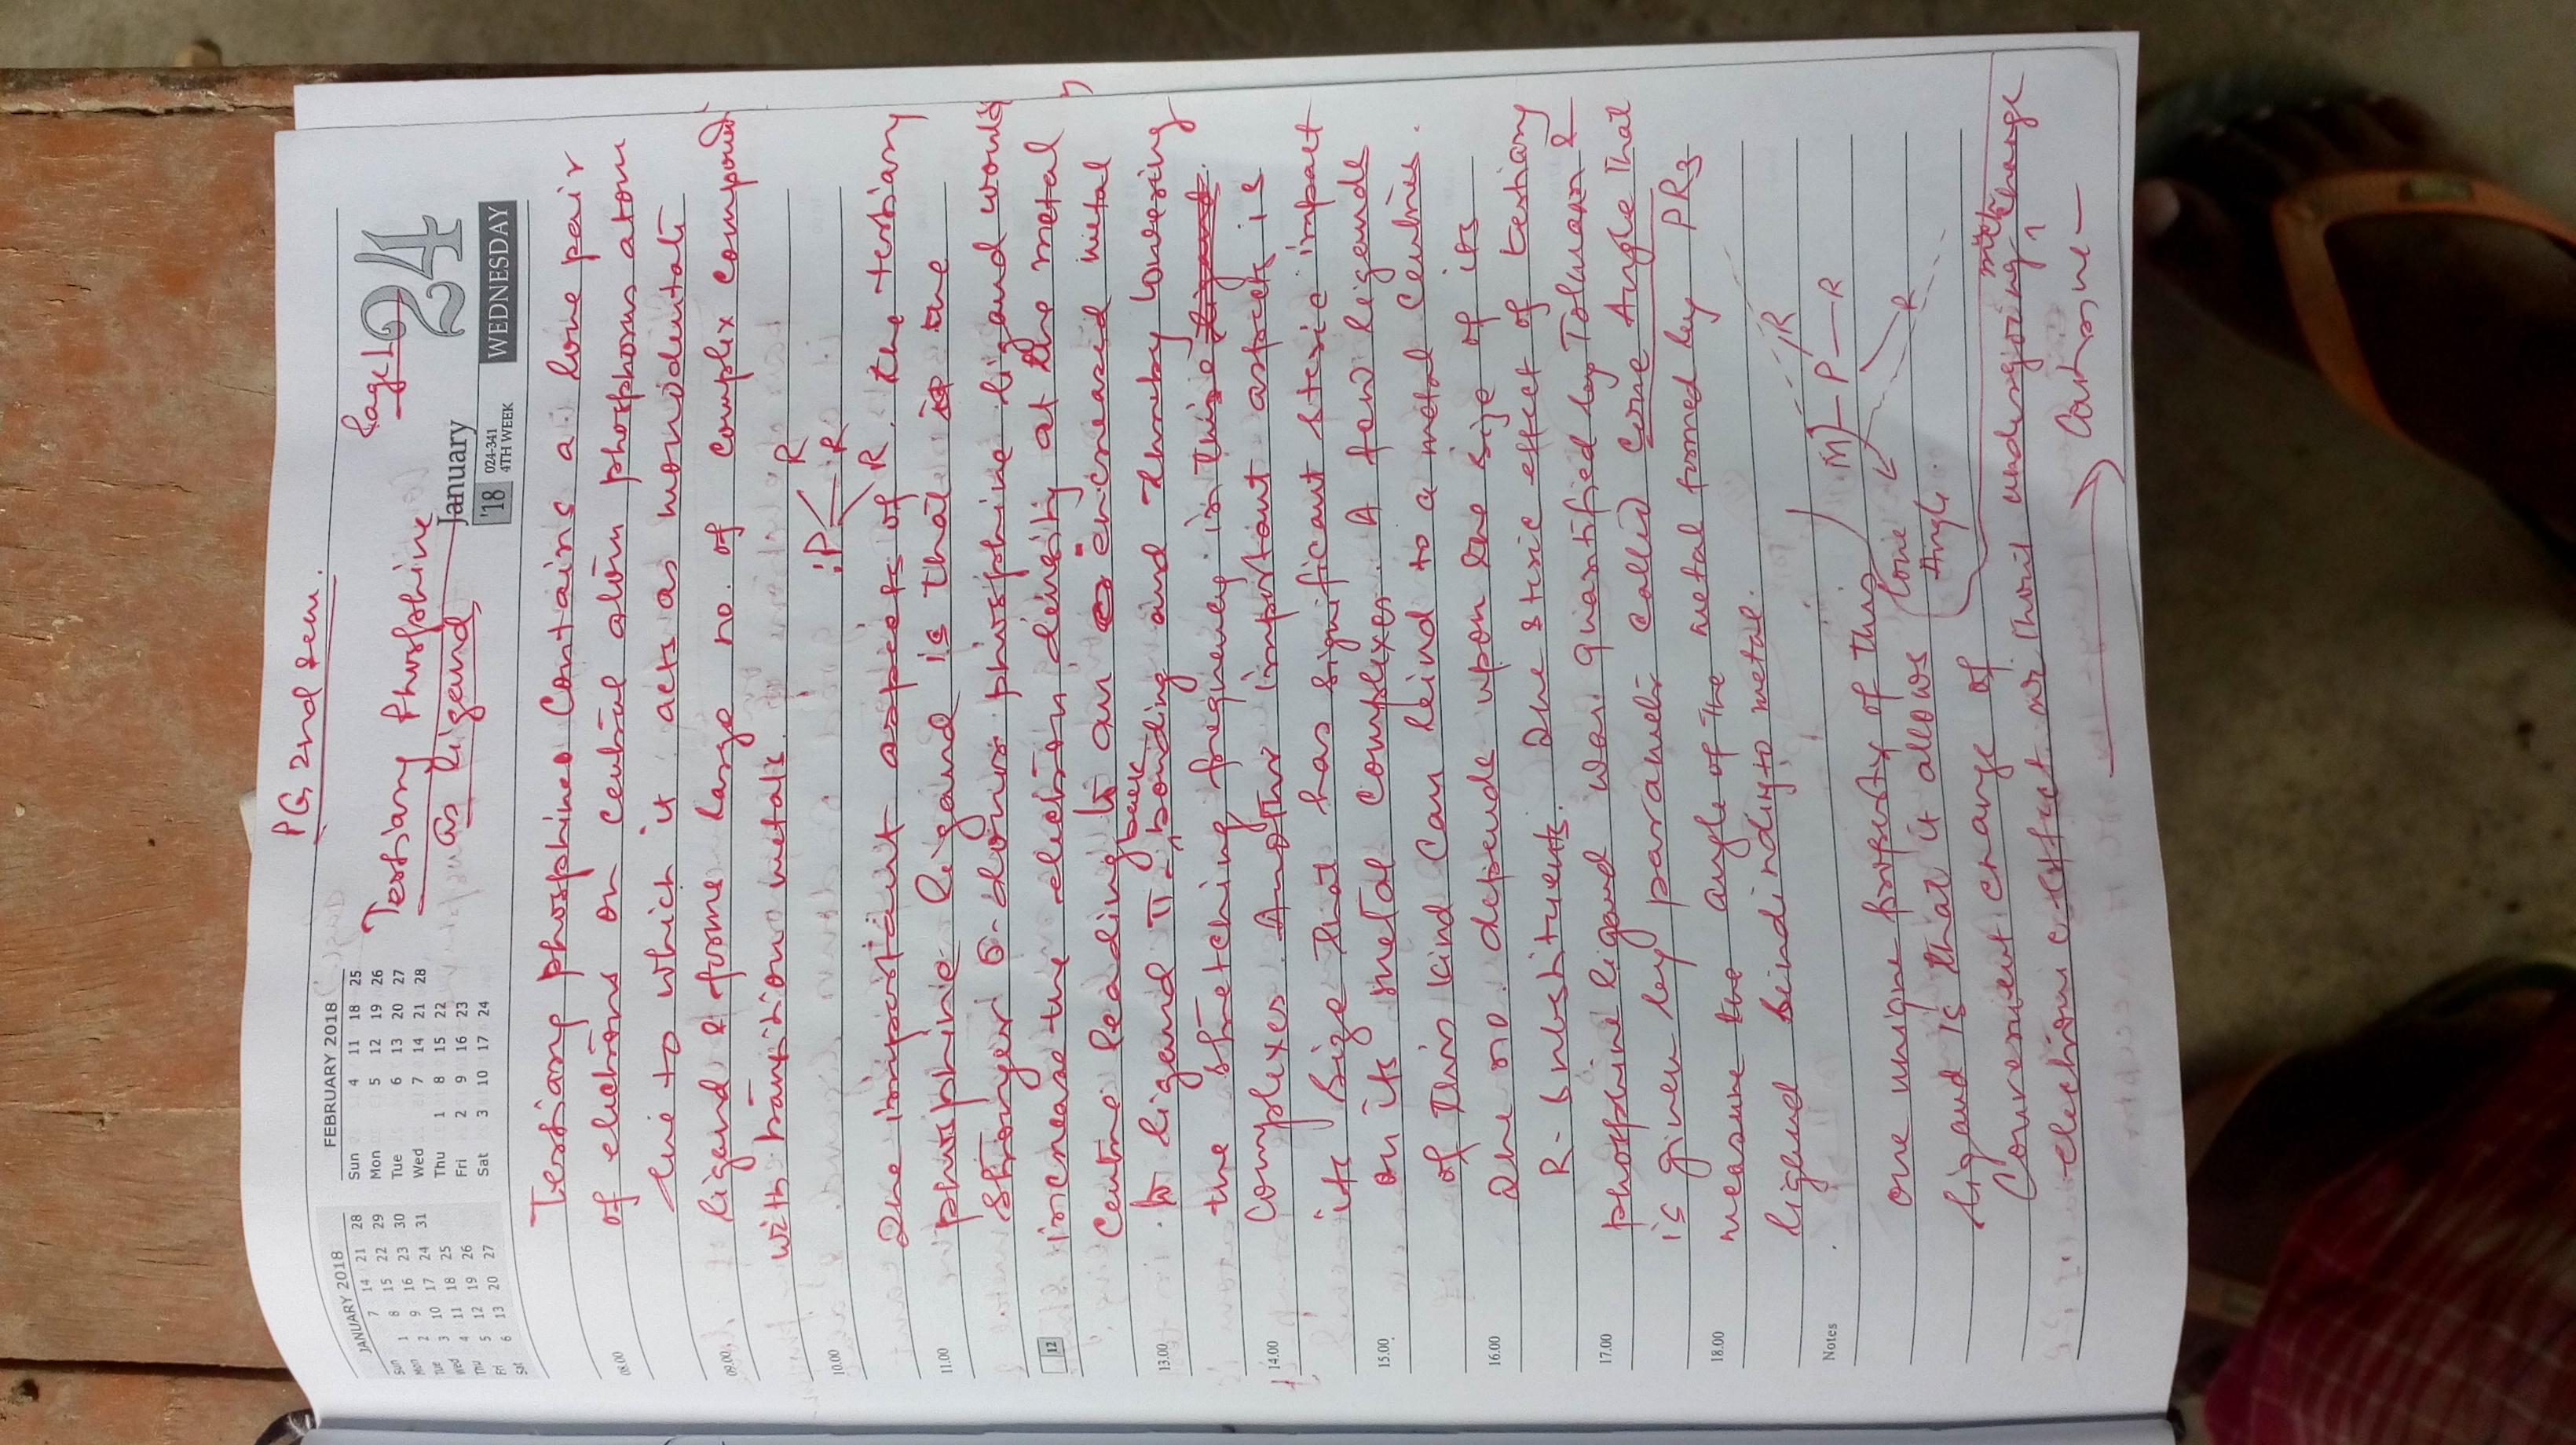 PG 2nd sem.
Page 1
Tertiary Phosphine
as ligand
JANUARY 2018
Sun 7 14 21 28
Mon 1 8 15 22 29
Tue 2 9 16 23 30
Wed 3 10 17 24 31
Thu 4 11 18 25
Fri 5 12 19 26
Sat 6 13 20 27
FEBRUARY 2018
Sun 4 11 18 25
Mon 5 12 19 26
Tue 6 13 20 27
Wed 7 14 21 28
Thu 1 8 15 22
Fri 2 9 16 23
Sat 3 10 17 24
January 24
'18 024-341 4TH WEEK WEDNESDAY
Tertiary phosphines contains a lone pair
08.00 of electrons on central atom phosphorus atom
due to which it acts as monodentate
09.00 ligand & forms large no. of complex compounds
with transitions metals. :P R R R
10.00
One important aspects of the tertiary
11.00 phosphine ligand is that is the
stronger σ-donor phosphine ligand would
12 increase the electron density at the metal
centre leading to an increased metal
13.00 to ligand π-back bonding and thereby lowering
the stretching frequency in this
14.00 complexes. Another important aspects is
its size that has significant steric impact
15.00 on its metal complexes. A few ligands
of this kind can bind to a metal centres.
16.00 The no. depends upon the size of its
R-substituents. The steric effect of tertiary
17.00 phosphine ligand was quantified by Tolman &
is given by parameter called Cone Angle that
18.00 measure the angle of the metal formed by PR3
ligand binding to metal.
Notes
M P R R R
one unique property of this
ligand is that it allows
Cone Angle
convenient change of
electronic effect without undergoing much change
Continue